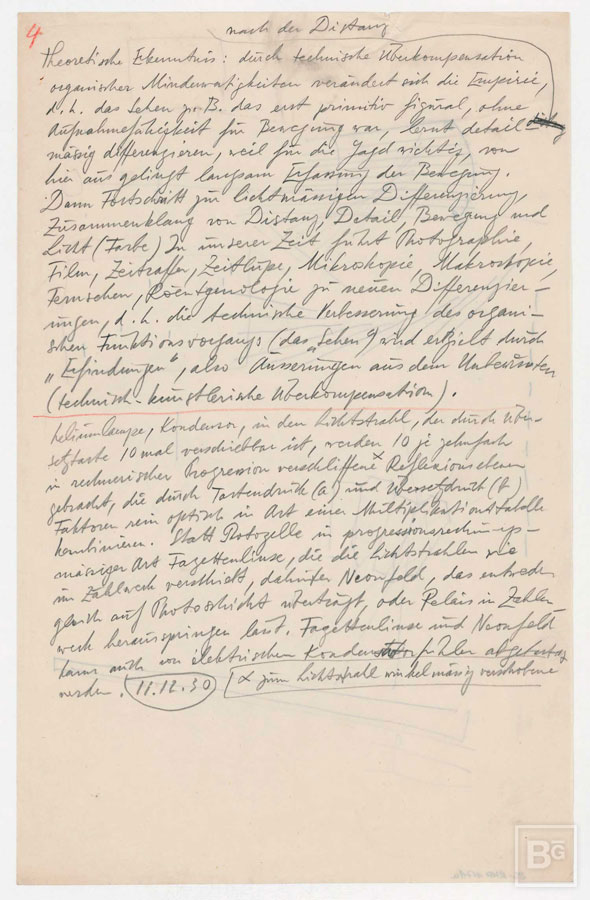 4
nach der Distanz
Theoretische Erkenntnis: durch technische Überkompensation
organischer Minderwertigkeiten verändert sich die Empirie,
d.h. das Sehen z.B. das erst primitiv figural, ohne
Aufnahmefähigkeit für Bewegung war, lernt detail-
mässig differenzieren, weil für die Jagd wichtig, von
hier aus gelingt langsam Erfassung der Bewegung.
Dann Fortschritt zur lichtmässigen Differenzierung,
Zusammenklang von Distanz, Detail, Bewegung und
Licht (Farbe) In unserer Zeit führt Photographie,
Film, Zeitraffer, Zeitlupe, Mikroskopie, Makroskopie,
Fernsehen, Röentgenologie zu neuen Differenzier-
ungen, d.h. die technische Verbesserung des organi-
schen Funktionsvorgangs (das „Sehen“) wird erzielt durch
„Erfindungen“, also Äusserungen aus dem Unbewussten
(technisch-künstlerische Überkompensation).
heliumlampe, Kondensor, in den Lichtstrahl, der durch Über-
setztaste 10 mal verschiebbar ist, werden 10 je zehnfach
in rechnerischer Progression verschliffene x Reflexionsebenen
gebracht, die durch Tastendruck (a) und (b)
Faktoren rein optisch in Art einer Multiplikationstabelle
kombinieren. Statt Photozelle in progressionsrechnungs-
mässiger Art Fagettenlinse, die die Lichtstrahlen wie
im Zählwerk verschickt, dahinter Neonfeld, das entweder
gleich auf Photoschicht überträgt, oder Relais in Zähler
werk herausspringen lässt. Fagettenlinse und Neonfeld
kann auch von elektrischen Kondensatorfühler abgetastet
werden. 11.12.30 x zum Lichtstrahl winkelmässig verschobene
BG